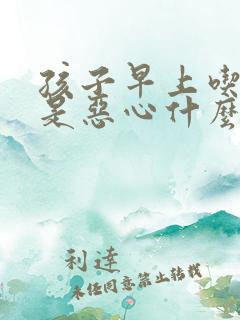 孩子早上喫
是惡心什麽
利達
未經同意禁止转载